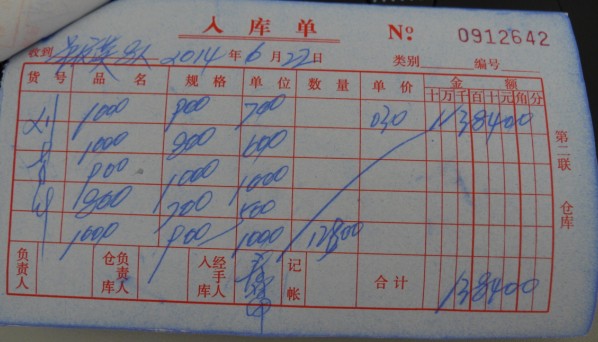 入库单 No 0912642
收到 2014年6月22日 类别 编号
货号 品名 规格 单位 数量 单价 金额
十万千百十元角分
1000 900 700 030 138400
1000 800 600
900 1000 1000
800 700 500
1000 900 1000 12800
负责人 仓库负责人 入库经手人 记帐 合计 138400
第二联 仓库